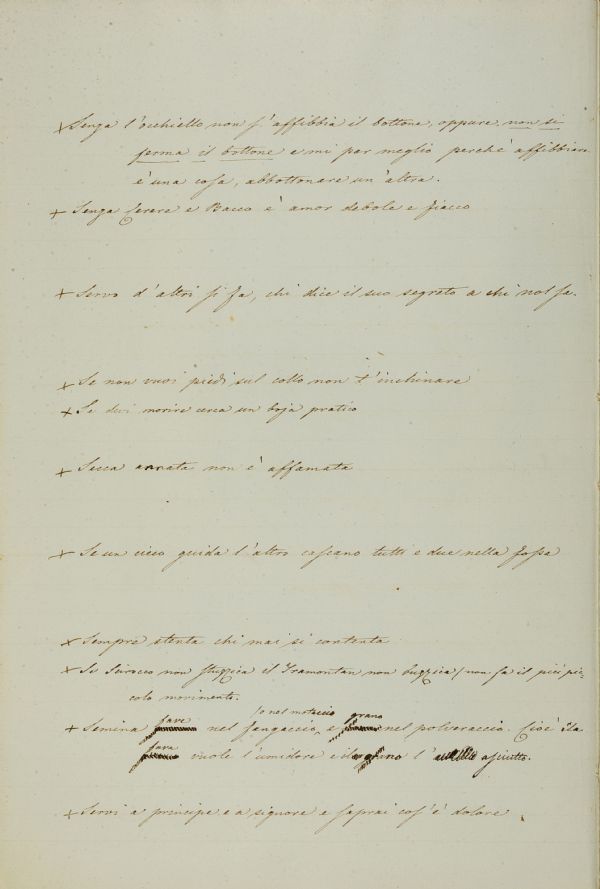 + Senza l'occhiello non s'affibbia il bottone, oppure, non si
ferma il bottone e mi par meglio perchè affibbiare
è una cosa, abbottonare un'altra.
+ Senza Cerere e Bacco è amor debole e fiacco
+ Servo d'altri si fa, chi dice il suo segreto a chi nol sa.
+ Se non vuoi piedi sul collo non t'inchinare
+ Se devi morire cerca un boja pratico
+ Secca annata non è affamata
+ Se un cieco guida l'altro cascano tutti e due nella fossa
+ Sempre stenta chi mai si contenta
+ Se Scirocco non stuzzica il Tramontan non buzzica (non fa il più pic-
colo movimento.
fave /o nel motaccio grano
+ Semina nel fangaccio, e nel polveraccio. Cioè la
fava vuole l'umidore e il grano l' asciutto.
+ Servi a principe e a signore e saprai cos'è dolore